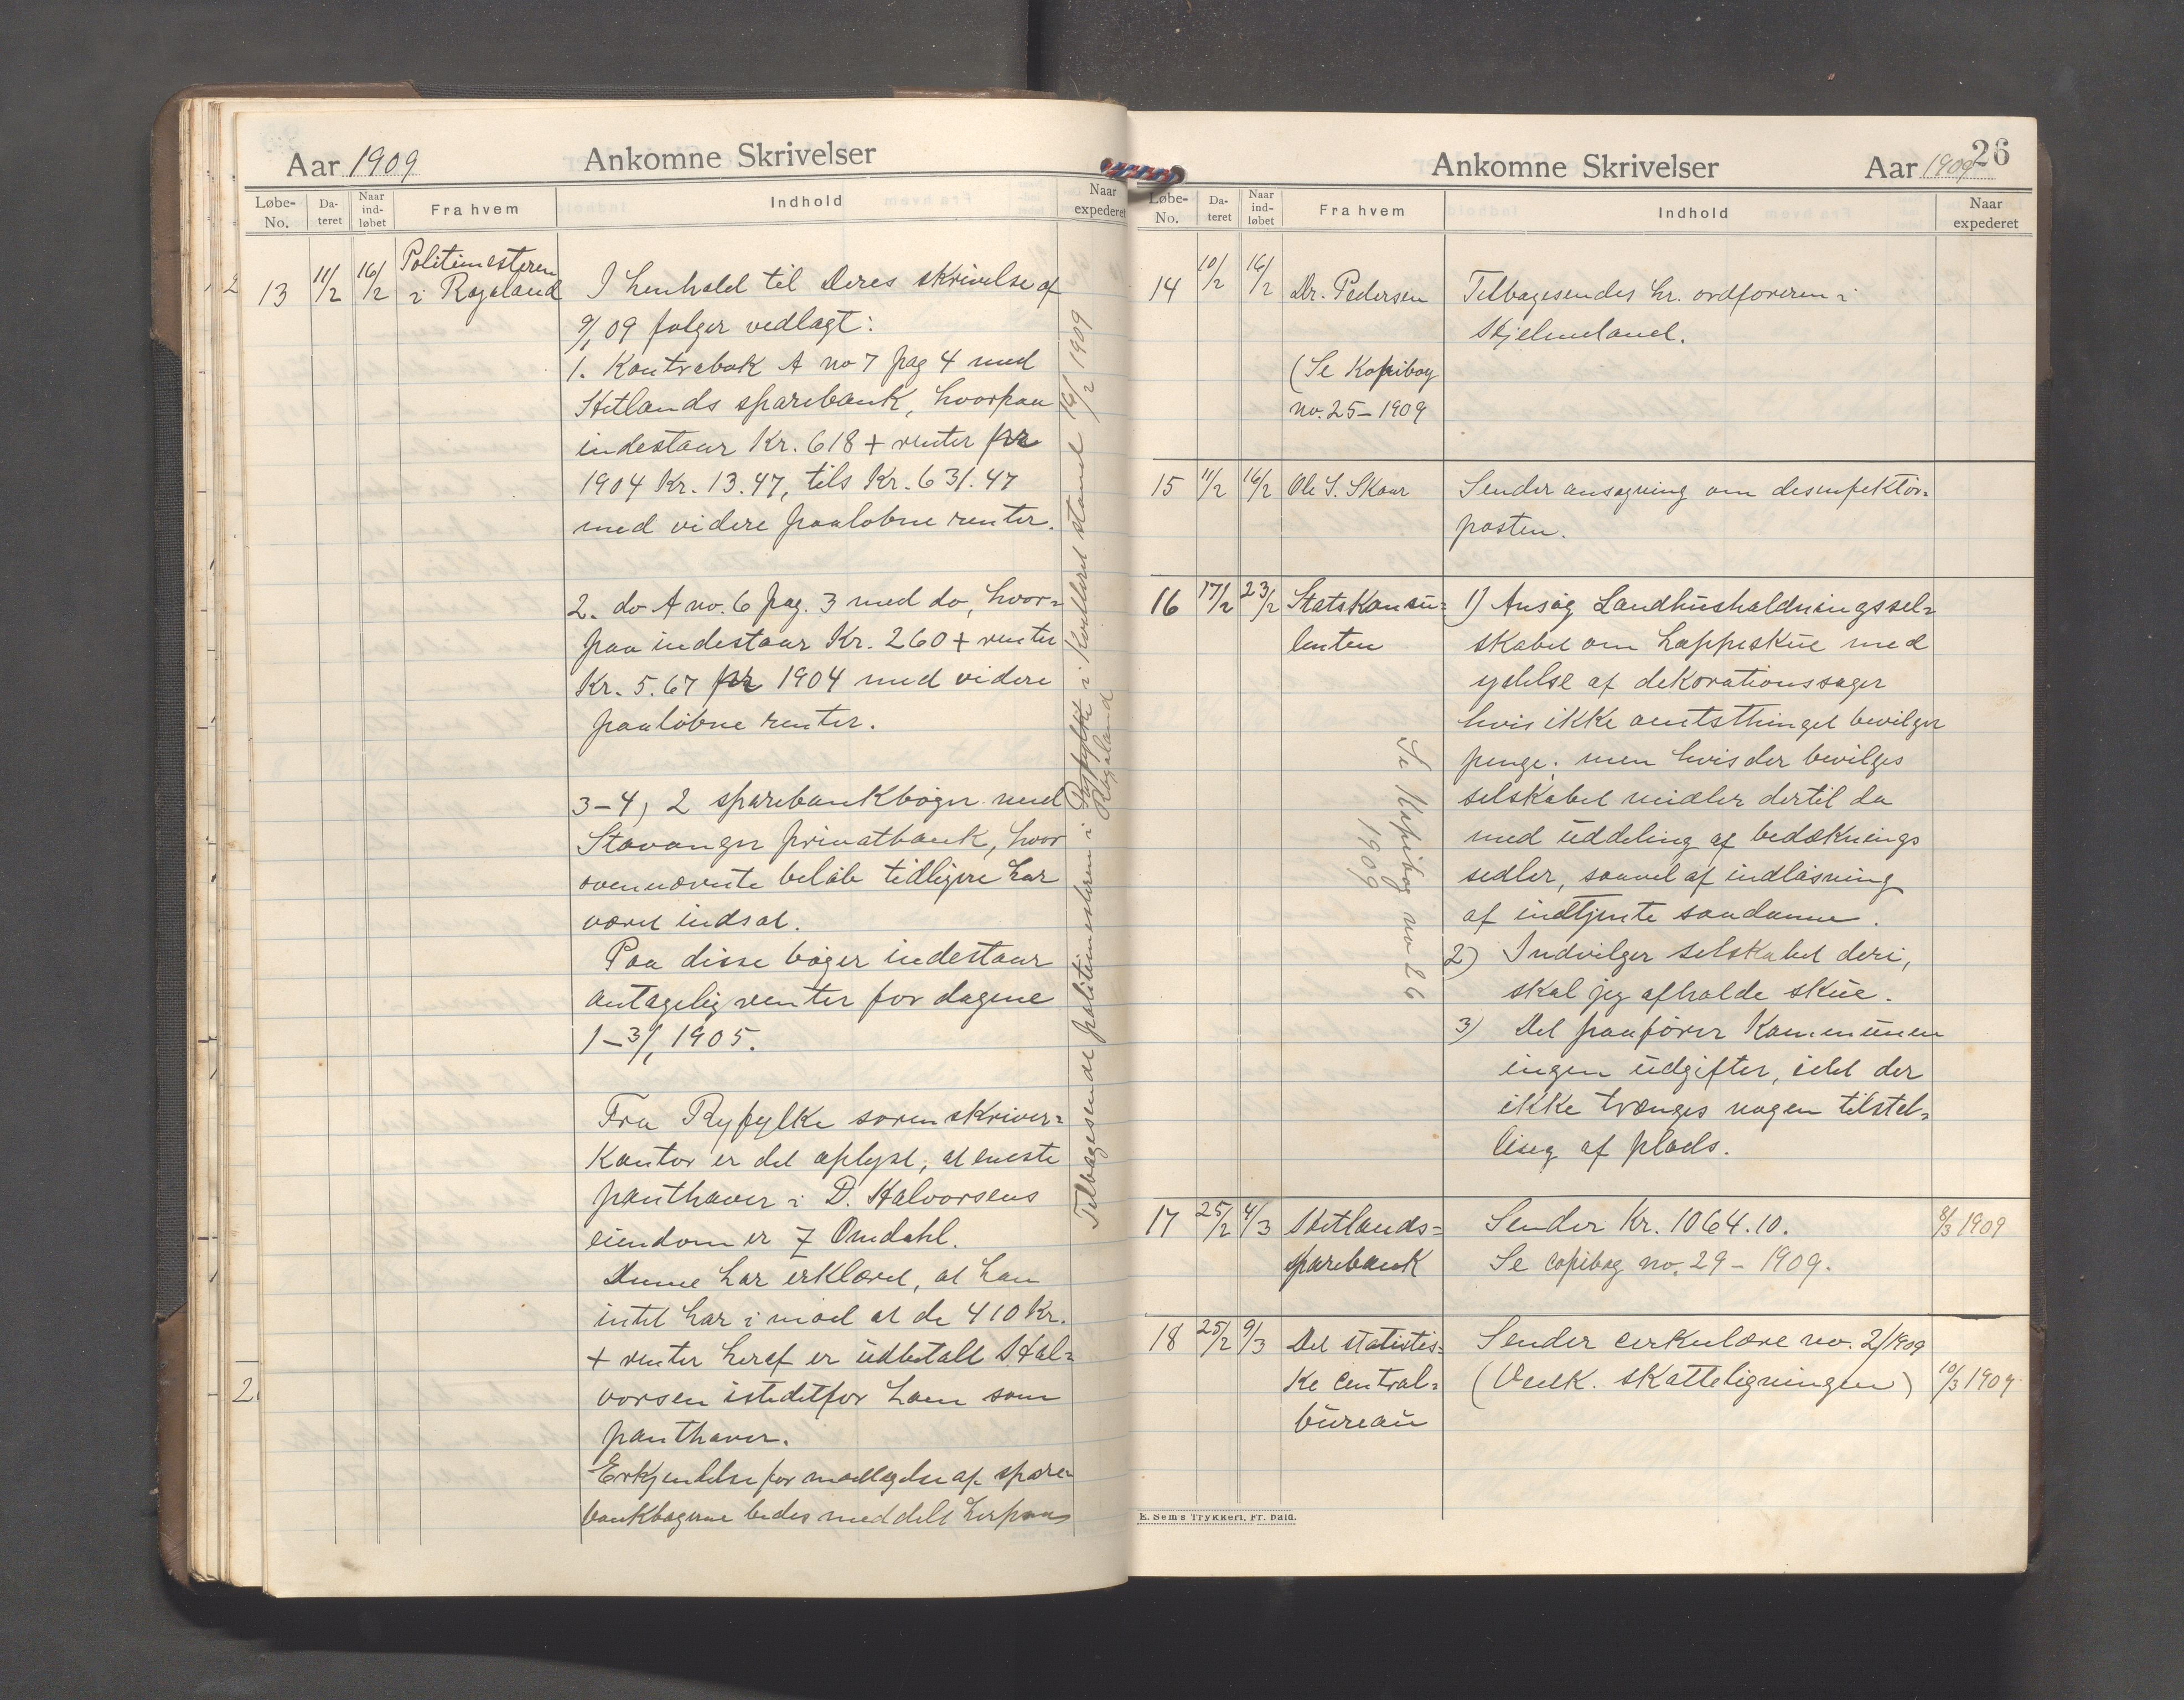 Aar 1909
Ankomne Skrivelser
Løbe-No.
Da-teret
Naar ind-løbet
Fra hvem
Indhold
Naar expederet
13
11/2
16/2
Politimesteren
i Rogaland
I henhold til Deres skrivelse af
9/1 09 følger vedlagt:
1. Kontrabok A no 7 pag 4 med
Hetlands sparebank, hvorpaa
indestaar Kr. 618 + renter pr
1904 Kr. 13.47, tils Kr. 631.47
med videre paaløbne renter.
2. do A no. 6 pag. 3 med do, hvor-
paa indestaar Kr. 260 + renter
Kr. 5.67 pr 1904 med videre
paaløbne renter.
3-4) 2 sparebankbøger med
Stavanger privatbank, hvor
ovennævnte beløb tidligere har
været indsat.
Paa disse bøger indestaar
antagelig renter for dagene
1-3/1 1905.
Fra Ryfylke sorenskriver-
kontor er det oplyst, at eneste
panthaver i D. Halvorsens
eiendom er Z Omdahl.
Denne har erklæret, at han
intet har imod at de 410 Kr.
+ renter heraf er udbetalt Hal-
vorsen istedetfor ham som
panthaver.
Erkjendelse for modtagelse af spare-
bankbøgerne bedes meddelt herpaa
Tilbagesendt politimesteren i Ryfylke i kvitteret stand 19/2 1909
Rogaland
2
2
Ankomne Skrivelser
Aar 1909
26
Løbe-No.
Da-teret
Naar ind-løbet
Fra hvem
Indhold
Naar expederet
14
10/2
16/2
Dr. Pedersen
(Se Kopibog
no. 25-1909
Tilbagesendes hr. ordføreren i
Skjelmeland.
15
11/2
16/2
Ole S. Skaar
Sender ansøgning om desinfektør-
posten.
16
17/2
23/2
Statskonsu-
lenten
Se Kopibog no 26
1909
1) Ansøg Landhusholdningssel-
skabet om hoppeskue med
ydelse af dekorationssager
hvis ikke amtsthinget bevilger
penge; men hvis der bevilges
selskabet midler dertil da
med uddeling af bedæknings
sedler, saavel af indløsning
af indtjente saadanne.
2) Indvilger selskabet deri,
skal jeg afholde skue.
3) Det paafører Kommunen
ingen udgifter, idet der
ikke trænges nogen tilstel-
ling af plads.
17
25/2
4/3
Hetlands-
sparebank
Sender Kr. 1064.10.
Se copibog no. 29-1909.
8/3 1909
18
25/2
9/3
Det statistis-
ke central-
bureau
Sender cirkulære no. 2/1909
(Vedk. skatteligningen)
10/3 1909
E. Sem's Trykkeri, Fr. hald.